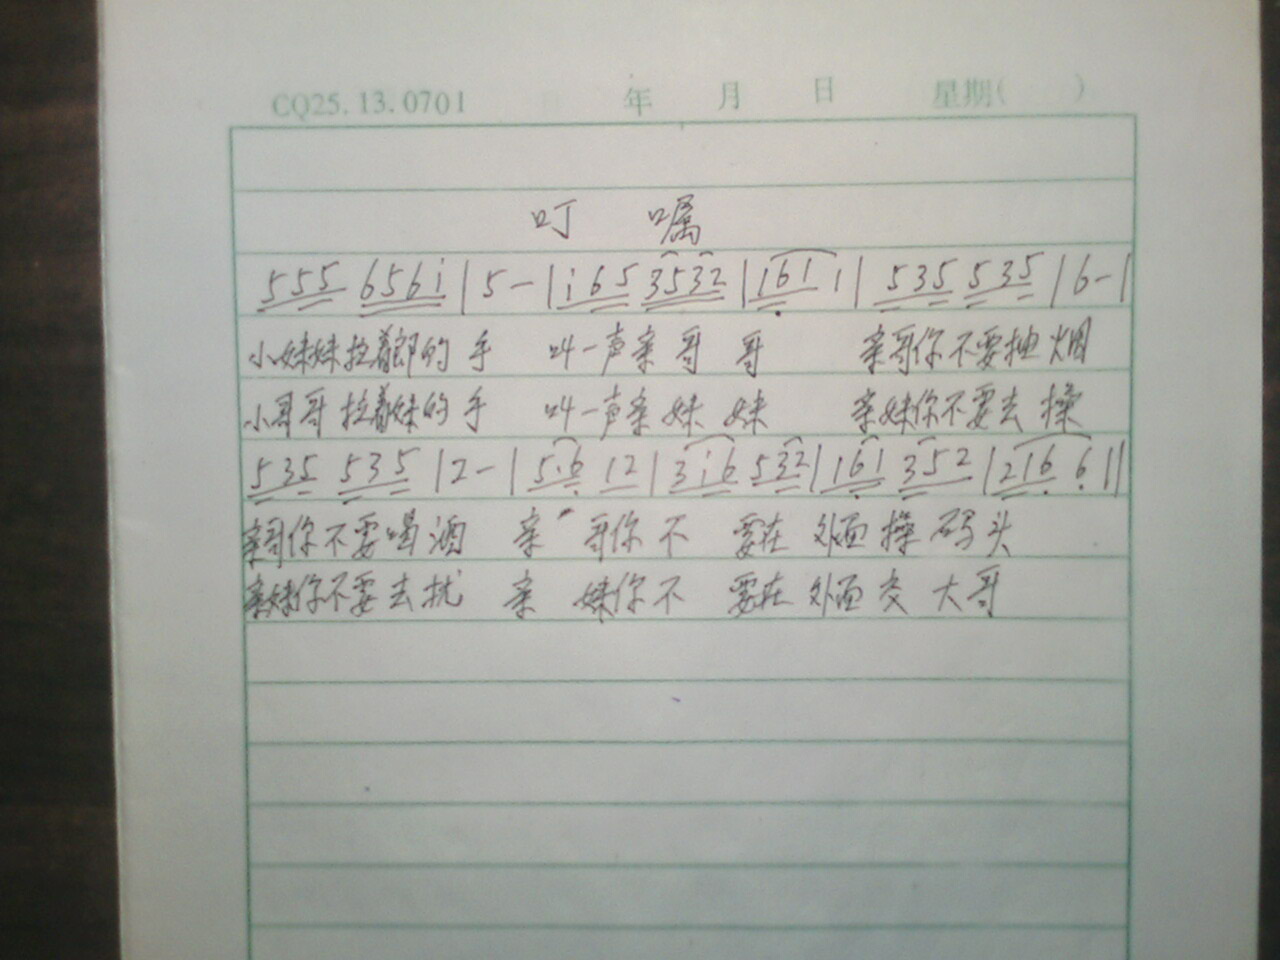 CQ25.13.0701 年 月 日 星期( )
叮 嘱
555 656i | 5 - | i65 3532 | 161 1 | 535 535 | 6 - |
小妹妹拉着郎的手 叫一声亲哥哥 亲哥你不要抽烟
小哥哥拉着妹的手 叫一声亲妹妹 亲妹你不要去操
535 535 | 2 - | 5·6 12 | 3i6 532 | 161 352 | 216 6 ||
亲哥你不要喝酒 亲 哥你不 要在 外面操码头
亲妹你不要去扰 亲 妹你不 要在 外面交 大哥